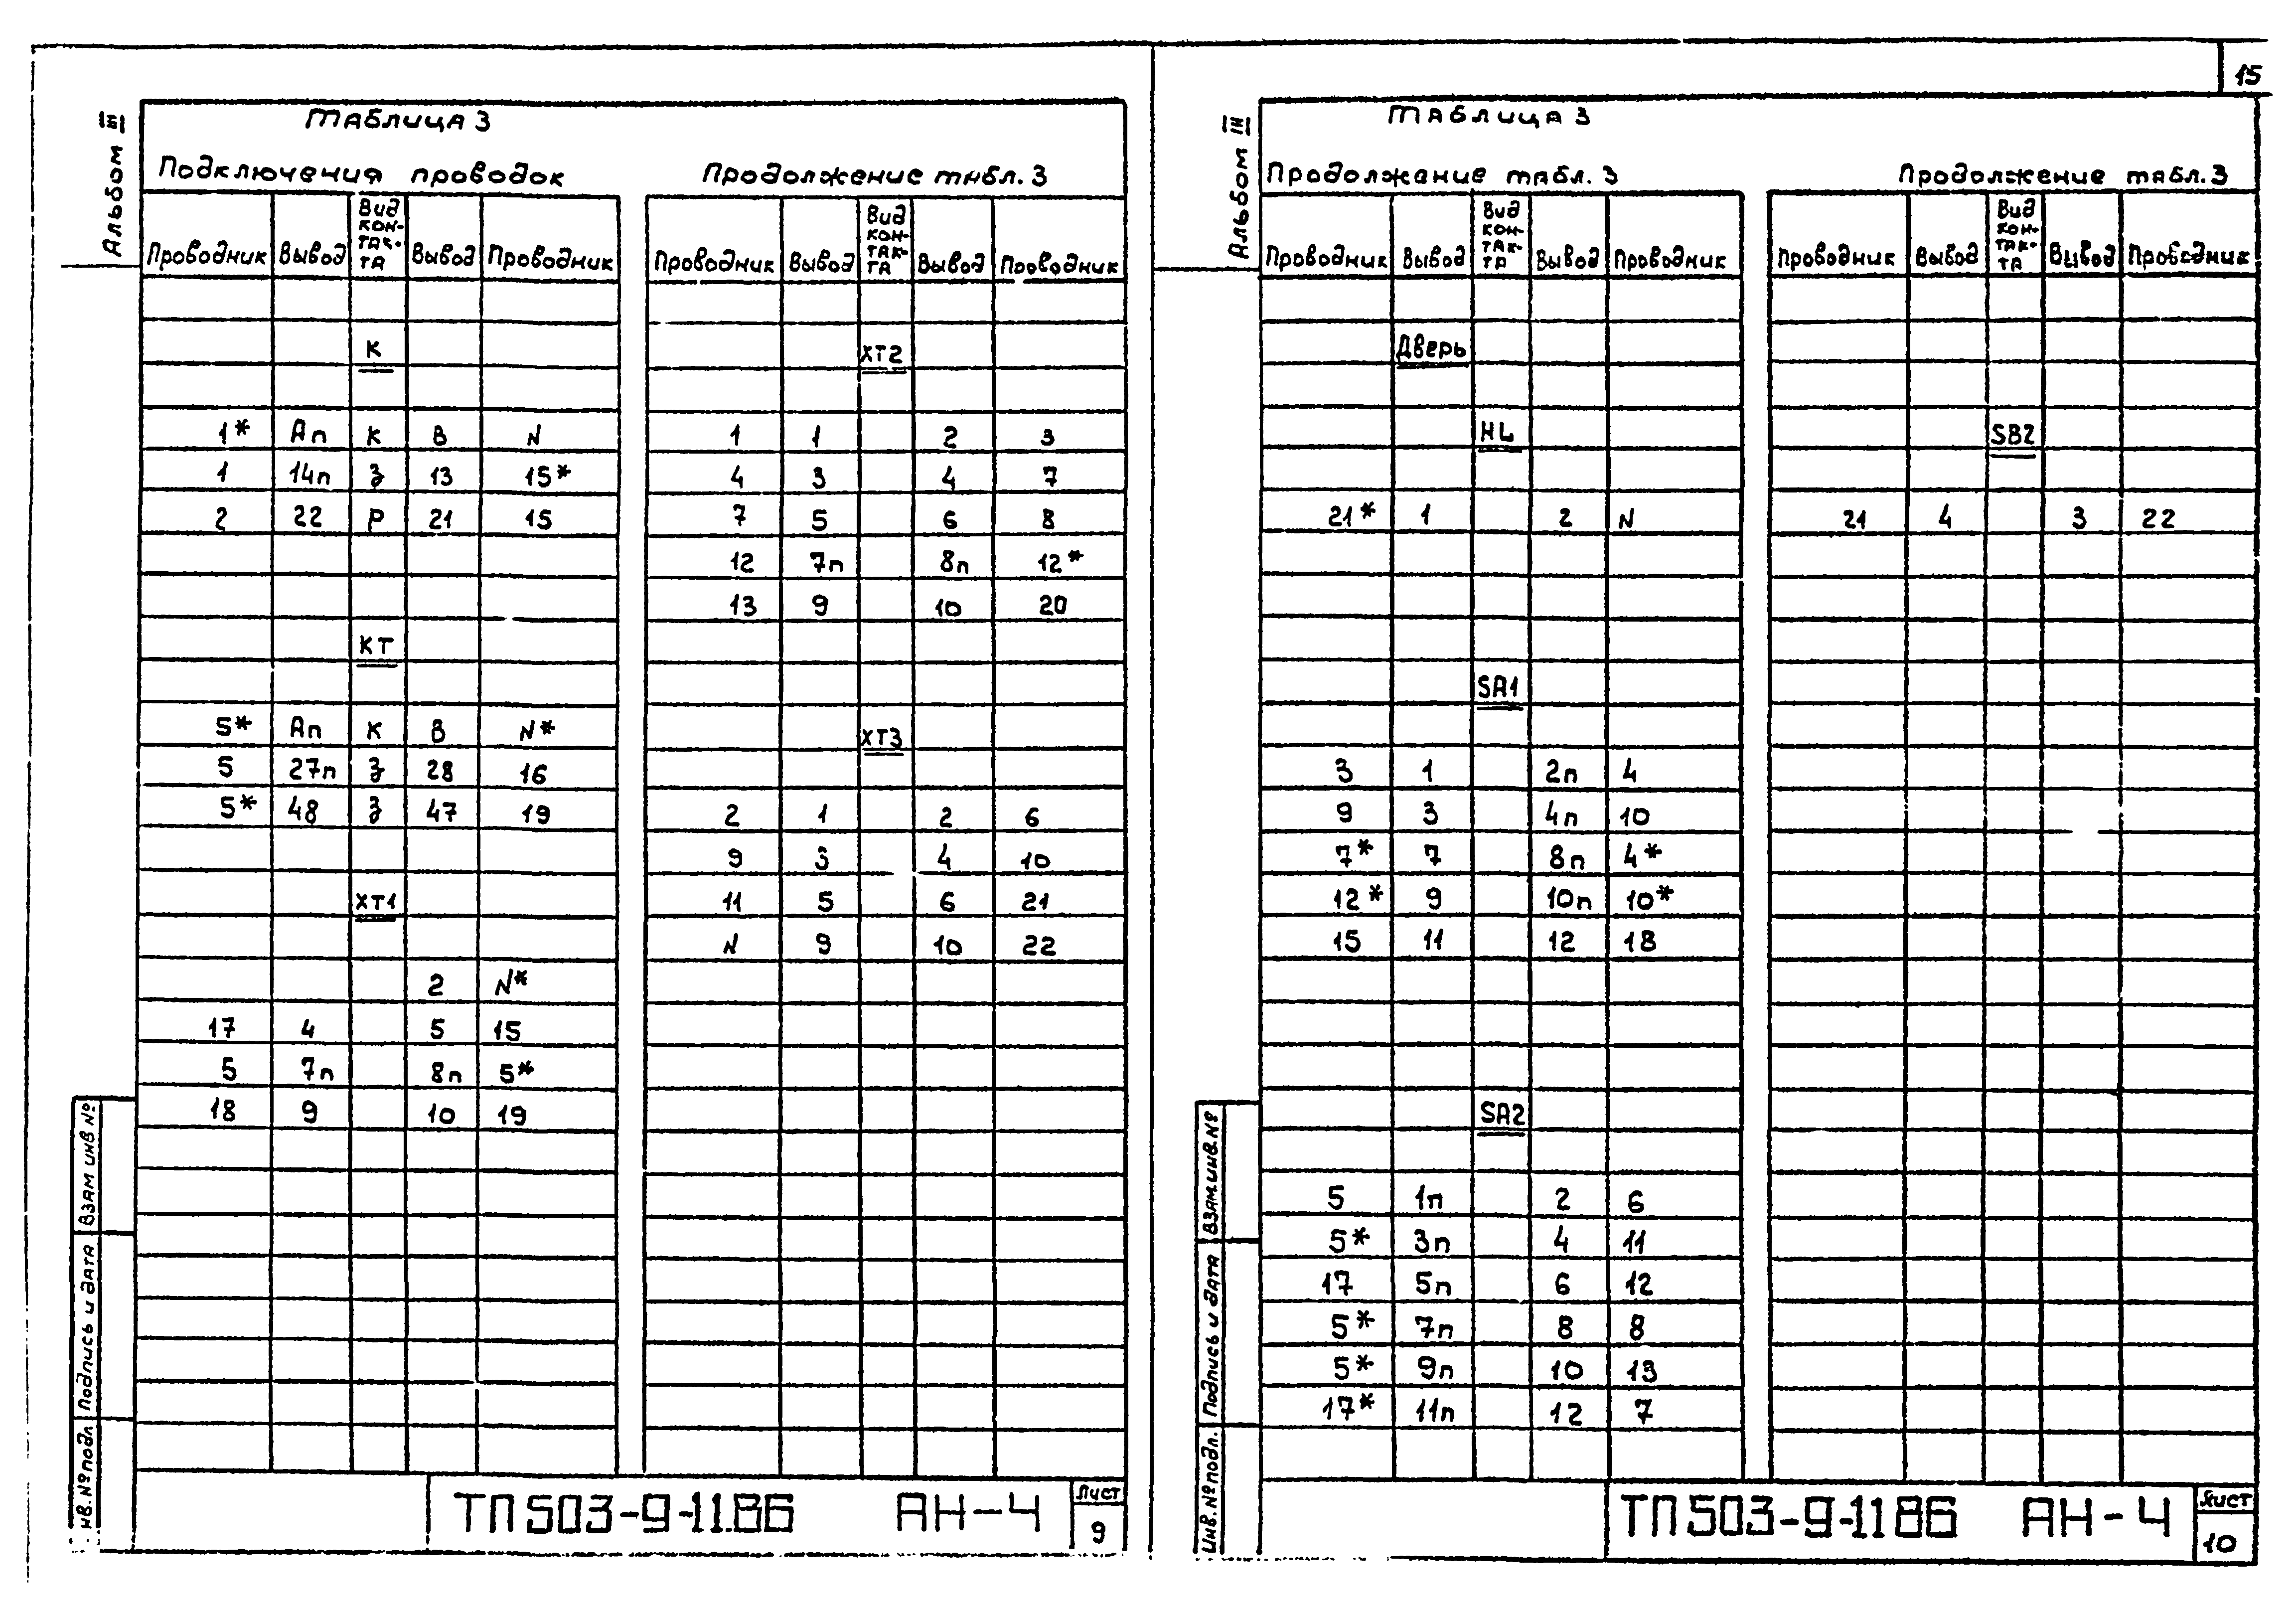 15
Альбом III
Таблица 3
Подключения проводок
Проводник Вывод Вид кон-так-та Вывод Проводник
К
1* Ап К В N
1 14п З 13 15*
2 22 Р 21 15
КТ
5* Ап К В N*
5 27п З 28 16
5* 48 З 47 19
ХТ1
2 N*
17 4 5 15
5 7п 8п 5*
18 9 10 19
Продолжение табл. 3
Проводник Вывод Вид кон-так-та Вывод Проводник
ХТ2
1 1 2 3
4 3 4 7
7 5 6 8
12 7п 8п 12*
13 9 10 20
ХТ3
2 1 2 6
9 3 4 10
11 5 6 21
N 9 10 22
Взам инв №
Подпись и дата
нв. № подл
ТП 503-9-11.86 АН-4
Лист
9
Альбом III
Таблица 3
Продолжание табл. 3
Проводник Вывод Вид кон-так-та Вывод Проводник
Дверь
HL
21* 1 2 N
SA1
3 1 2п 4
9 3 4п 10
7* 7 8п 4*
12* 9 10п 10*
15 11 12 18
SA2
5 1п 2 6
5* 3п 4 11
17 5п 6 12
5* 7п 8 8
5* 9п 10 13
17* 11п 12 7
Продолжение табл. 3
Проводник Вывод Вид кон-так-та Вывод Проводник
SB2
21 4 3 22
Взам инв. №
Подпись и дата
Инв. № подл.
ТП 503-9-11 86 АН-4
Лист
10